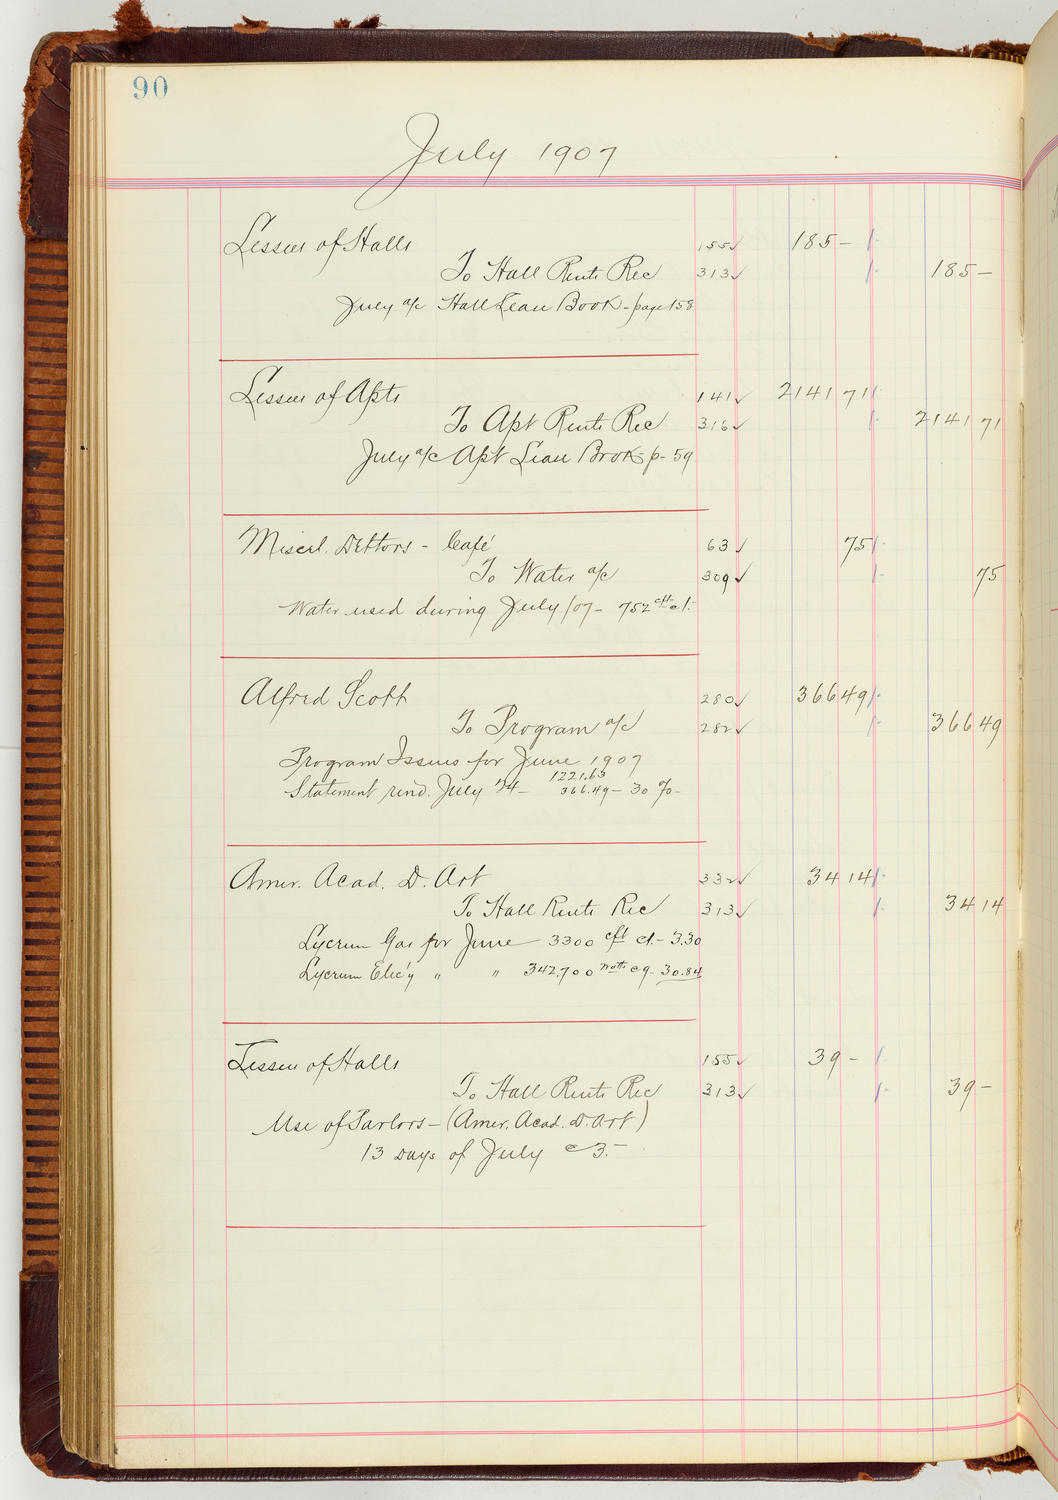 90
July 1907
Lessees of Halls 155✓ 185 –
To Hall Rents Rec 313✓ 185 –
July a/c Hall Lease Book - page 158
Lessees of Apts 141✓ 2141 71
To Apt Rents Rec 316✓ 2141 71
July a/c Apt Lease Book - p - 59
Miscel. Debtors - Café 63 ✓ 75
To Water a/c 309 ✓ 75
Water used during July /07 - 752 cft @ 1.
Alfred Scott 280✓ 366 49
To Program a/c 282✓ 366 49
Program Issues for June 1907
1221.63
Statement rend. July 24 - 366.49 - 30 % -
Amer. Acad. D. Art 332✓ 34 14
To Hall Rents Rec 313✓ 34 14
Lyceum Gas for June 3300 cft @1.- 3.30
Lyceum Elec'y " " 342.700 watts @ 9- 30.84
Lessees of Halls 155✓ 39 –
To Hall Rents Rec 313✓ 39 –
Use of Parlors - (Amer. Acad. D. Art)
13 Days of July @ 3.–